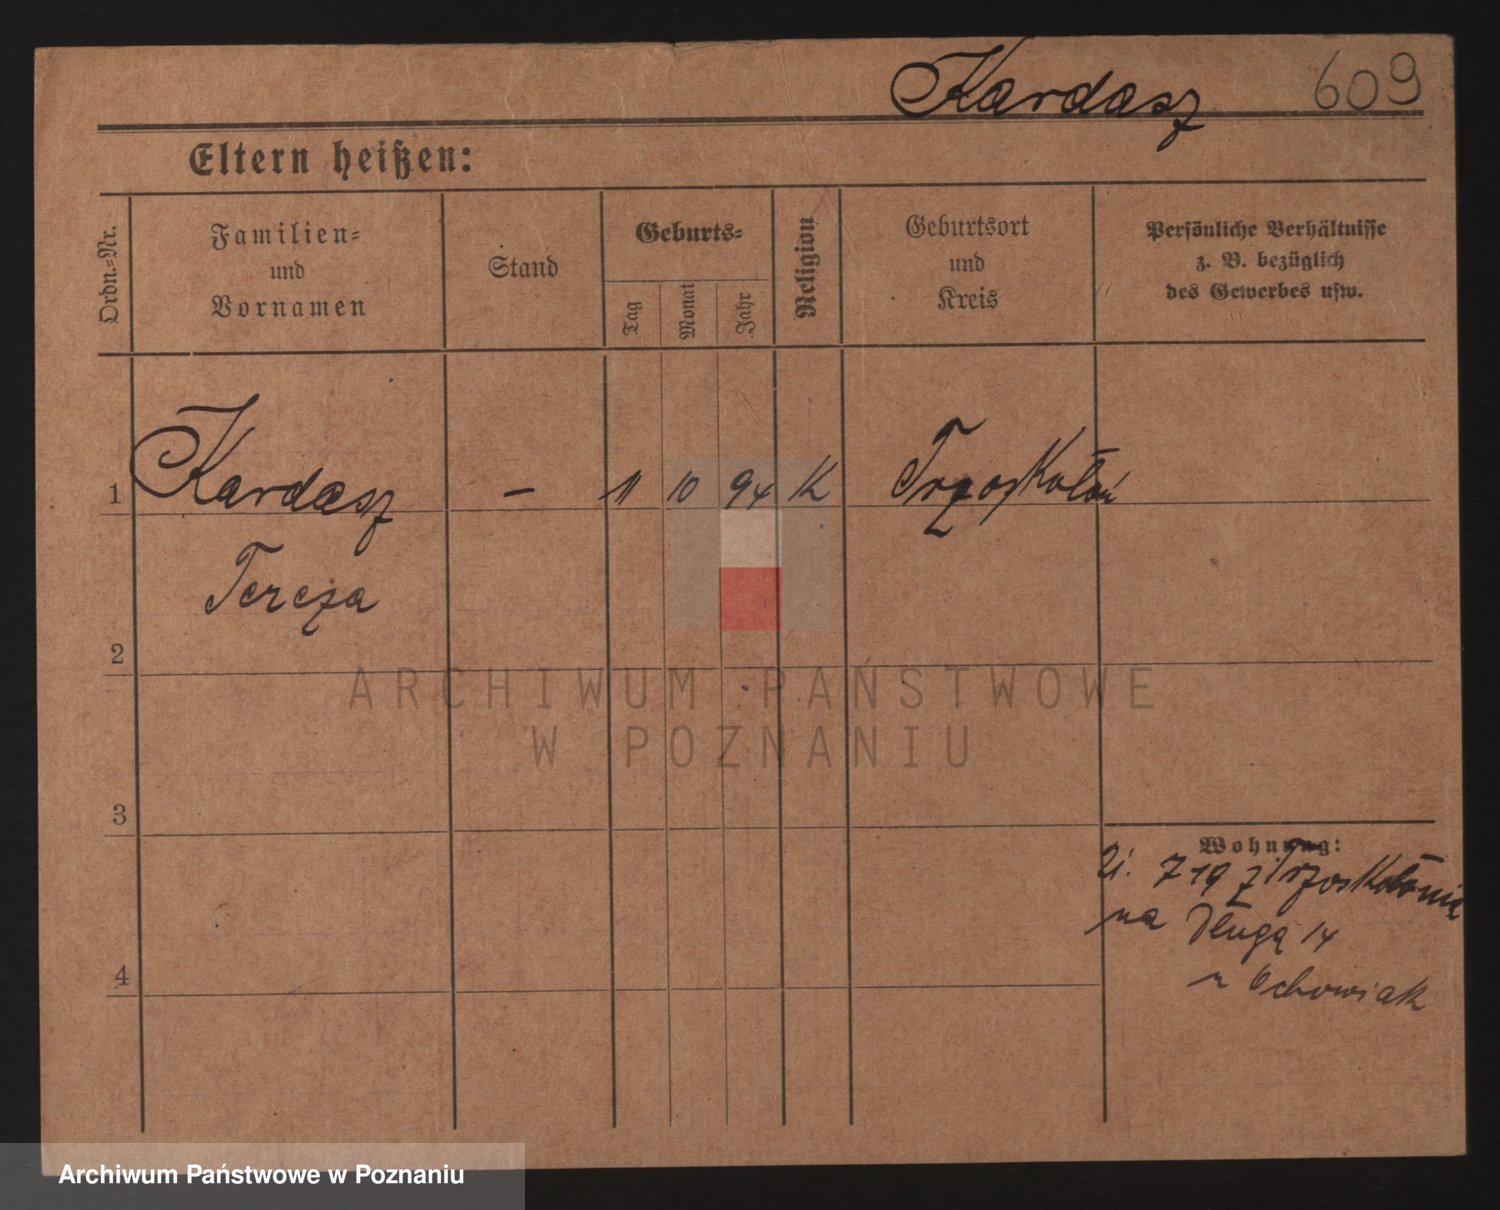 Kardasz 609
Eltern heißen:
Ordn.-Nr.
Familien-
und
Vornamen
Stand
Geburts-
Tag
Monat
Jahr
Religion
Geburtsort
und
Kreis
Persönliche Verhältnisse
z. B. bezüglich
des Gewerbes usw.
1 Kardasz - 11 10 94 K Trzoskołoń
Tereza
2
ARCHIWUM PAŃSTWOWE
W POZNANIU
3
Wohnung:
7 19 z Trzoskołonie
na Długą 14
Ochowiak
4
Archiwum Państwowe w Poznaniu